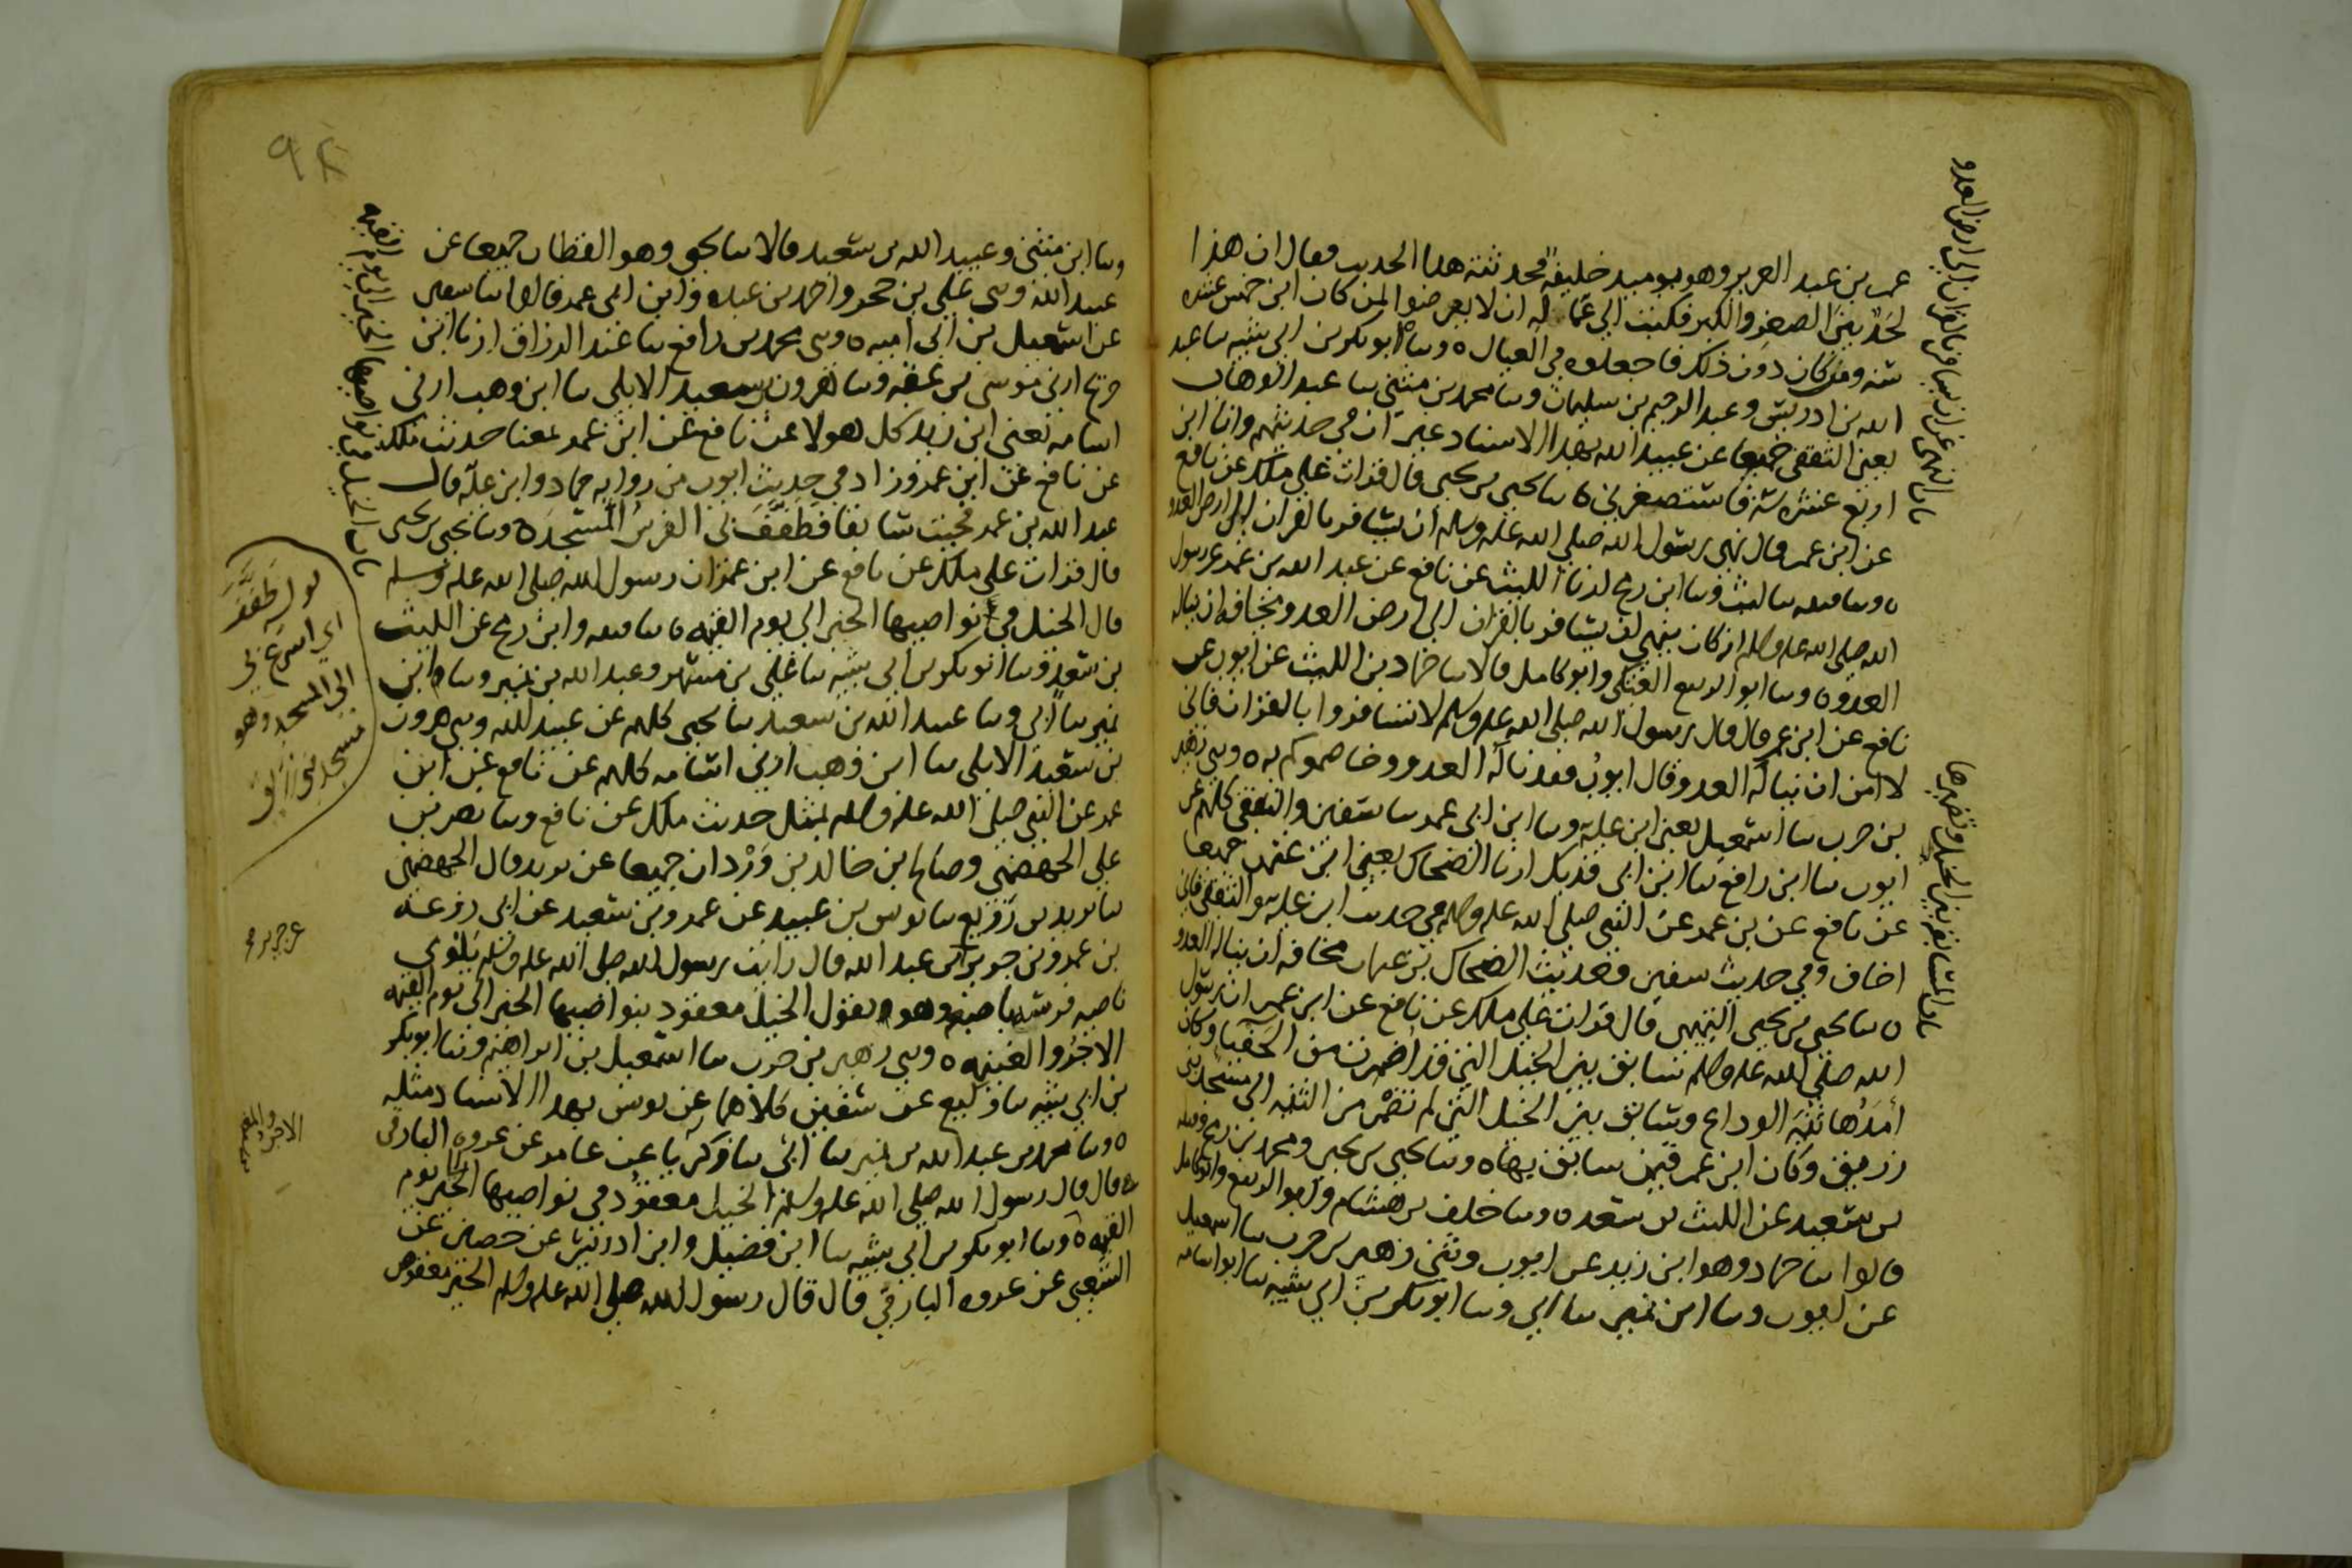 عمر بن عبد العزيز وهو يوميذ خليفة فحدثته هذا الحديث فقال ان هذا
لحد بين الصغير والكبير فكتب الى عماله ان لا يعرضوا لمن كان ابن خمس عشره
سنه ومن كان دون ذلك فاجعلوه في العيال ه وسا ابو بكر بن ابي شيبه سا عبد
الله بن ادريس وعبد الرحيم بن سليمان وسا محمد بن مثنى سا عبد الوهاب
يعني الثقفي جميعا عن عبيد الله بهذا الاسناد غير ان في حديثهم وانا ابن
اربع عشره سنه فاستصغرني ه سا يحيى بن يحيى قال قرات على ملك عن نافع
عن ابن عمر قال نهى رسول الله صلى الله عليه وسلم ان يسافر بالقران الى ارض العدو
ه وسا قتيبه سا ليث وسا ابن رمح ارنا الليث عن نافع عن عبد الله بن عمر عن رسول
الله صلى الله عليه وسلم انه كان ينهى ان يسافر بالقران الى ارض العدو مخافه ان يناله
العدو ه وسا ابو الربيع العتكي وابو كامل قالا سا حماد عن ايوب عن
نافع عن ابن عمر قال قال رسول الله صلى الله عليه وسلم لا تسافروا بالقران فاني
لا امن ان يناله العدو وقال ايوب فقد ناله العدو وخاصموكم به ه وسى زهير
بن حرب سا اسمعيل يعني ابن عليه وسا ابن ابي عمر سا سفين والثقفي كلهم عن
ايوب سا ابن رافع سا ابن ابي فديك ارنا الضحاك يعني ابن عثمن جميعا
عن نافع عن بن عمر عن النبي صلى الله عليه وسلم في حديث ابن عليه والثقفي فاني
اخاف وفي حديث سفين وحديث الضحاك بن عثمان مخافه ان يناله العدو
ه سا يحيى بن يحيى التميمي قال قرات على ملك عن نافع عن ابن عمر ان رسول
الله صلى الله عليه وسلم سابق بين الخيل التي قد اضمرت من الحفيا وكان
أمدها ثنية الوداع وسابق بين الخيل التي لم تضمر من الثنيه الى مسجد بني
زريق وكان ابن عمر فيمن سابق بها ه وسا يحيى بن يحيى ومحمد بن رمح وقتيبه
بن سعيد عن الليث بن سعد ه وسا خلف بن هشام وابو الربيع وابو كامل
قالوا سا حماد وهو ابن زيد عن ايوب وثنى زهير بن حرب سا اسمعيل
عن ايوب وسا ابن نمير سا ابي وسا ابو بكر بن ابي شيبه سا ابو اسامه
باب النهي عن ان يسافر بالقران الى ارض العدو
باب المسابقه بين الخيل وتضميرها
٩٢
وسا ابن مثنى وعبيد الله بن سعيد قالا سا يحيى وهو القطان جميعا عن
عبيد الله وسى علي بن حجر واحمد بن عبده وابن ابي عمر قالوا سا سفين
عن اسمعيل بن ابي اميه ه وسى محمد بن رافع سا عبد الرزاق ارنا ابن
جريج ارني موسى بن عقبه وسا هرون بن سعيد الايلي سا ابن وهب ارني
اسامه يعني ابن زيد كل هولا عن نافع عن ابن عمر بمعنا حديث ملك
عن نافع عن ابن عمر وزاد في حديث ايوب من روايه حماد وابن عليه قال
عبد الله بن عمر فجيت سابقا فطفف بي الفرس المسجد ه وسا يحيى بن يحيى
قال قرات على ملك عن نافع عن ابن عمر ان رسول الله صلى الله عليه وسلم
قال الخيل في نواصيها الخير الى يوم القيمه ه سا قتيبه وابن رمح عن الليث
بن سعد وسا ابو بكر بن ابي شيبه سا علي بن مسهر وعبد الله بن نمير وسا ابن
نمير سا ابي وسا عبيد الله بن سعيد سا يحيى كلهم عن عبيد الله وسى هرون
بن سعيد الايلي سا ابن وهب ارني اسامه كلهم عن نافع عن ابن
عمر عن النبي صلى الله عليه وسلم بمثل حديث ملك عن نافع وسا نصر بن
علي الجهضمي وصالح ابن خالد بن وردان جميعا عن يزيد قال الجهضمي
سا يزيد بن زريع سا يونس بن عبيد عن عمرو بن سعيد عن ابي زرعة
بن عمرو بن جرير عن جرير بن عبد الله قال رايت رسول الله صلى الله عليه وسلم يلوي
ناصيه فرس باصبعه وهو يقول الخيل معقود بنواصيها الخير الى يوم القيمه
الاجر والغنيمه ه وسى زهير بن حرب سا اسمعيل بن ابراهيم وسا ابو بكر
بن ابي شيبه سا وكيع عن سفين كلاهما عن يونس بهذا الاسناد مثله
ه وسا محمد بن عبد الله بن نمير سا ابي سا زكريا عن عامر عن عروه البارقي
قال قال رسول الله صلى الله عليه وسلم الخيل معقود في نواصيها الخير الى يوم
القيمه ه وسا ابو بكر بن ابي شيبه سا ابن فضيل وابن ادريس عن حصين عن
الشعبي عن عروه البارقي قال قال رسول الله صلى الله عليه وسلم الخير معقوص
باب الخيل في نواصيها الخير الى يوم القيمه
قوله طفف
اي اسرع بي
الى المسجد وهو
مسجد بني زريق
عن جرير
الاجر والمغنم